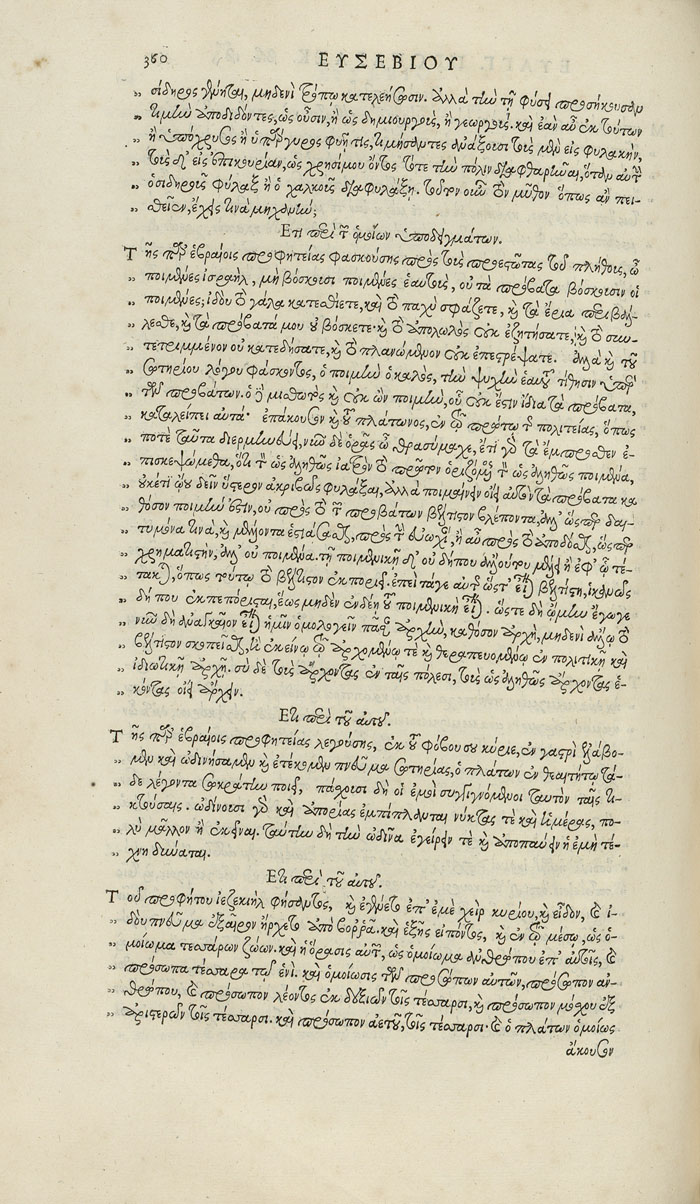 360 ΕΥΣΕΒΙΟΥ
„ σίδηρος γένηται, μηδενὶ τρόπῳ κατελεήσωσιν. ἀλλὰ τὴν τῇ φύσει προσήκουσαν
„ τιμὴν ἀποδιδόντες, ὡς οὖσιν, ἢ ὡς δημιουργοῖς, ἢ γεωργοῖς. καὶ ἐὰν αὖ ἐκ τούτων
„ ἢ ὑπόχρυσος ἢ ὑπάργυρος φυῇ τις, τιμήσαντες ἀνάξουσι τοὺς μὲν εἰς φυλακὴν,
„ τοὺς δ' εἰς ἐπικουρίαν, ὡς χρησμοῦ ὄντος τότε τὴν πόλιν διαφθαρῆναι, ὅταν αὐτὴν
„ ὁ σιδηροῦς φύλαξ ἢ ὁ χαλκοῦς διαφυλάξῃ. τοῦτον οὖν τὸν μῦθον ὅπως ἂν πει-
„ σθεῖεν, ἔχεις τινὰ μηχανήν;
Ετι περὶ τῶν ὁμοίων ὑποδειγμάτων.
Τῆς παρ' ἑβραίοις προφητείας φασκούσης πρὸς τοὺς προεστῶτας τοῦ πλήθους, ὦ
„ ποιμένες ἰσραὴλ, μὴ βόσκουσι ποιμένες ἑαυτοὺς, οὐ τὰ πρόβατα βόσκουσιν οἱ
„ ποιμένες; ἰδοὺ τὸ γάλα κατεσθίετε, καὶ τὸ παχὺ σφάζετε, καὶ τὰ ἔρια περιβάλ-
„ λεσθε, καὶ τὰ πρόβατά μου οὐ βόσκετε· καὶ τὸ ἀπολωλὸς οὐκ ἐζητήσατε, καὶ τὸ συν-
„ τετριμμένον οὐ κατεδήσατε, καὶ τὸ πλανώμενον οὐκ ἐπεστρέψατε. ἀλλὰ καὶ τοῦ
„ σωτηρίου λόγου φάσκοντος, ὁ ποιμὴν ὁ καλὸς, τὴν ψυχὴν ἑαυτοῦ τίθησιν ὑπὲρ
„ τῶν προβάτων. ὁ δὲ μισθωτὸς καὶ οὐκ ὢν ποιμὴν, οὗ οὐκ ἔστιν ἴδια τὰ πρόβατα,
„ καταλείπει αὐτά· ἐπάκουσον καὶ τοῦ πλάτωνος, ἐν τῷ πρώτῳ τῆς πολιτείας, ὅπως
„ ποτὲ ταῦτα διερμηνεύει, νῦν δὲ ὁρᾷς ὦ θρασύμαχε, ἔτι γὰρ τὰ ἔμπροσθεν ἐ-
„ πισκεψώμεθα, ὅτι τὸν ὡς ἀληθῶς ἰατρὸν τὸ πρῶτον ὁριζόμενος τὸν ὡς ἀληθῶς ποιμένα,
„ οὐκέτι ᾤου δεῖν ὕστερον ἀκριβῶς φυλάξαι, ἀλλὰ ποιμαίνειν οἴει αὐτὸν τὰ πρόβατα κα
„ θόσον ποιμήν ἐστιν, οὐ πρὸς τὸ τῶν προβάτων βέλτιστον βλέποντα, ἀλλ' ὥσπερ δαι-
„ τυμόνα τινὰ, καὶ μέλλοντα ἑστιάσεσθαι, πρὸς τὴν εὐωχίαν, ἢ αὖ πρὸς τὸ ἀποδόσθαι, ὥσπερ
„ χρηματιστὴν, ἀλλ' οὐ ποιμένα. τῇ ποιμενικῇ δ' οὐ δήπου ἄλλου του μέλει ἢ ἐφ' ᾧ τέ-
„ τακται, ὅπως τούτῳ τὸ βέλτιστον ἐκποριεῖ. ἐπεὶ τάγε αὐτῆς ὥστ' εἶναι βελτίστη, ἱκανῶς
„ δή που ἐκπεπόρισται, ἕως μηδὲν ἐνδέῃ τοῦ ποιμενικὴ εἶναι. ὥστε δὴ ᾤμην ἔγωγε
„ νῦν δὴ ἀναγκαῖον εἶναι ἡμῖν ὁμολογεῖν πᾶσαν ἀρχὴν, καθόσον ἀρχὴ, μηδενὶ ἄλλῳ τὸ
„ βέλτιστον σκοπεῖσθαι, ἢ ἐκείνῳ τῷ ἀρχομένῳ τὲ καὶ θεραπευομένῳ ἐν πολιτικῇ καὶ
„ ἰδιωτικῇ ἀρχῇ. σὺ δὲ τοὺς ἄρχοντας ἐν ταῖς πόλεσι, τοὺς ὡς ἀληθῶς ἄρχοντας ἑ-
„ κόντας οἴει ἄρχειν.
Ετι περὶ τοῦ αὐτοῦ.
Τῆς παρ' ἑβραίοις προφητείας λεγούσης, ἐκ τοῦ φόβου σου κύριε, ἐν γαστρὶ ἐλάβο-
„ μεν καὶ ὠδινήσαμεν καὶ ἐτέκομεν πνεῦμα σωτηρίας, ὁ πλάτων ἐν θεαιτήτῳ τά-
„ δε λέγοντα σωκράτην ποιεῖ, πάσχουσι δὴ οἱ ἐμοὶ συγγιγνόμενοι ταυτὸν ταῖς τι-
„ κτούσαις. ὠδίνουσι γὰρ καὶ ἀπορίας ἐμπίπλανται νύκτας τὲ καὶ ἡμέρας, πο-
„ λὺ μᾶλλον ἢ ἐκεῖναι. ταύτην δὴ τὴν ὠδῖνα ἐγείρειν τὲ καὶ ἀποπαύειν ἡ ἐμὴ τέ-
„ χνη δύναται.
Ετι περὶ τοῦ αὐτοῦ.
Τοῦ προφήτου ἰεζεκιὴλ φήσαντος, καὶ ἐγένετο ἐπ' ἐμὲ χεὶρ κυρίου, καὶ εἶδον, καὶ ἰ-
„ δοὺ πνεῦμα ἐξαῖρον ἤρχετο ἀπὸ βορρᾶ. καὶ ἑξῆς εἰπόντος, καὶ ἐν τῷ μέσῳ, ὡς ὁ-
„ μοίωμα τεσσάρων ζώων. καὶ ἡ ὅρασις αὐτῶν, ὡς ὁμοίωμα ἀνθρώπου ἐπ' αὐτοῖς, καὶ
„ πρόσωπα τέσσαρα τῷ ἑνί. καὶ ὁμοίωσις τῶν προσώπων αὐτῶν, πρόσωπον ἀν-
„ θρώπου, καὶ πρόσωπον λέοντος ἐκ δεξιῶν τοῖς τέσσαρσι, καὶ πρόσωπον μόσχου ἐξ
„ ἀριστερῶν τοῖς τέσσαρσι. καὶ πρόσωπον ἀετοῦ, τοῖς τέσσαρσι· καὶ ὁ πλάτων ὁμοίως
ἄκουσον